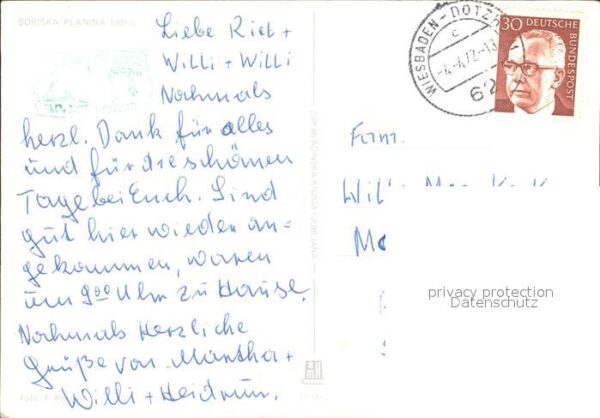 SORIŠKA PLANINA
Liebe Rietl +
Willi + Willi
Nochmals
herzl. Dank für alles
und für die schönen
Tage bei Euch. Sind
gut hier wieder an=
gekommen, waren
um 9 00 Uhr zu Hause.
Nochmals Herzliche
Grüße von Martha +
Willi + Heidrun.
Foto: F.
WIESBADEN-DOTZH
c
-4.-4.72-13
62
30 DEUTSCHE
BUNDESPOST
Fam.
Willi
privacy protection
Datenschutz